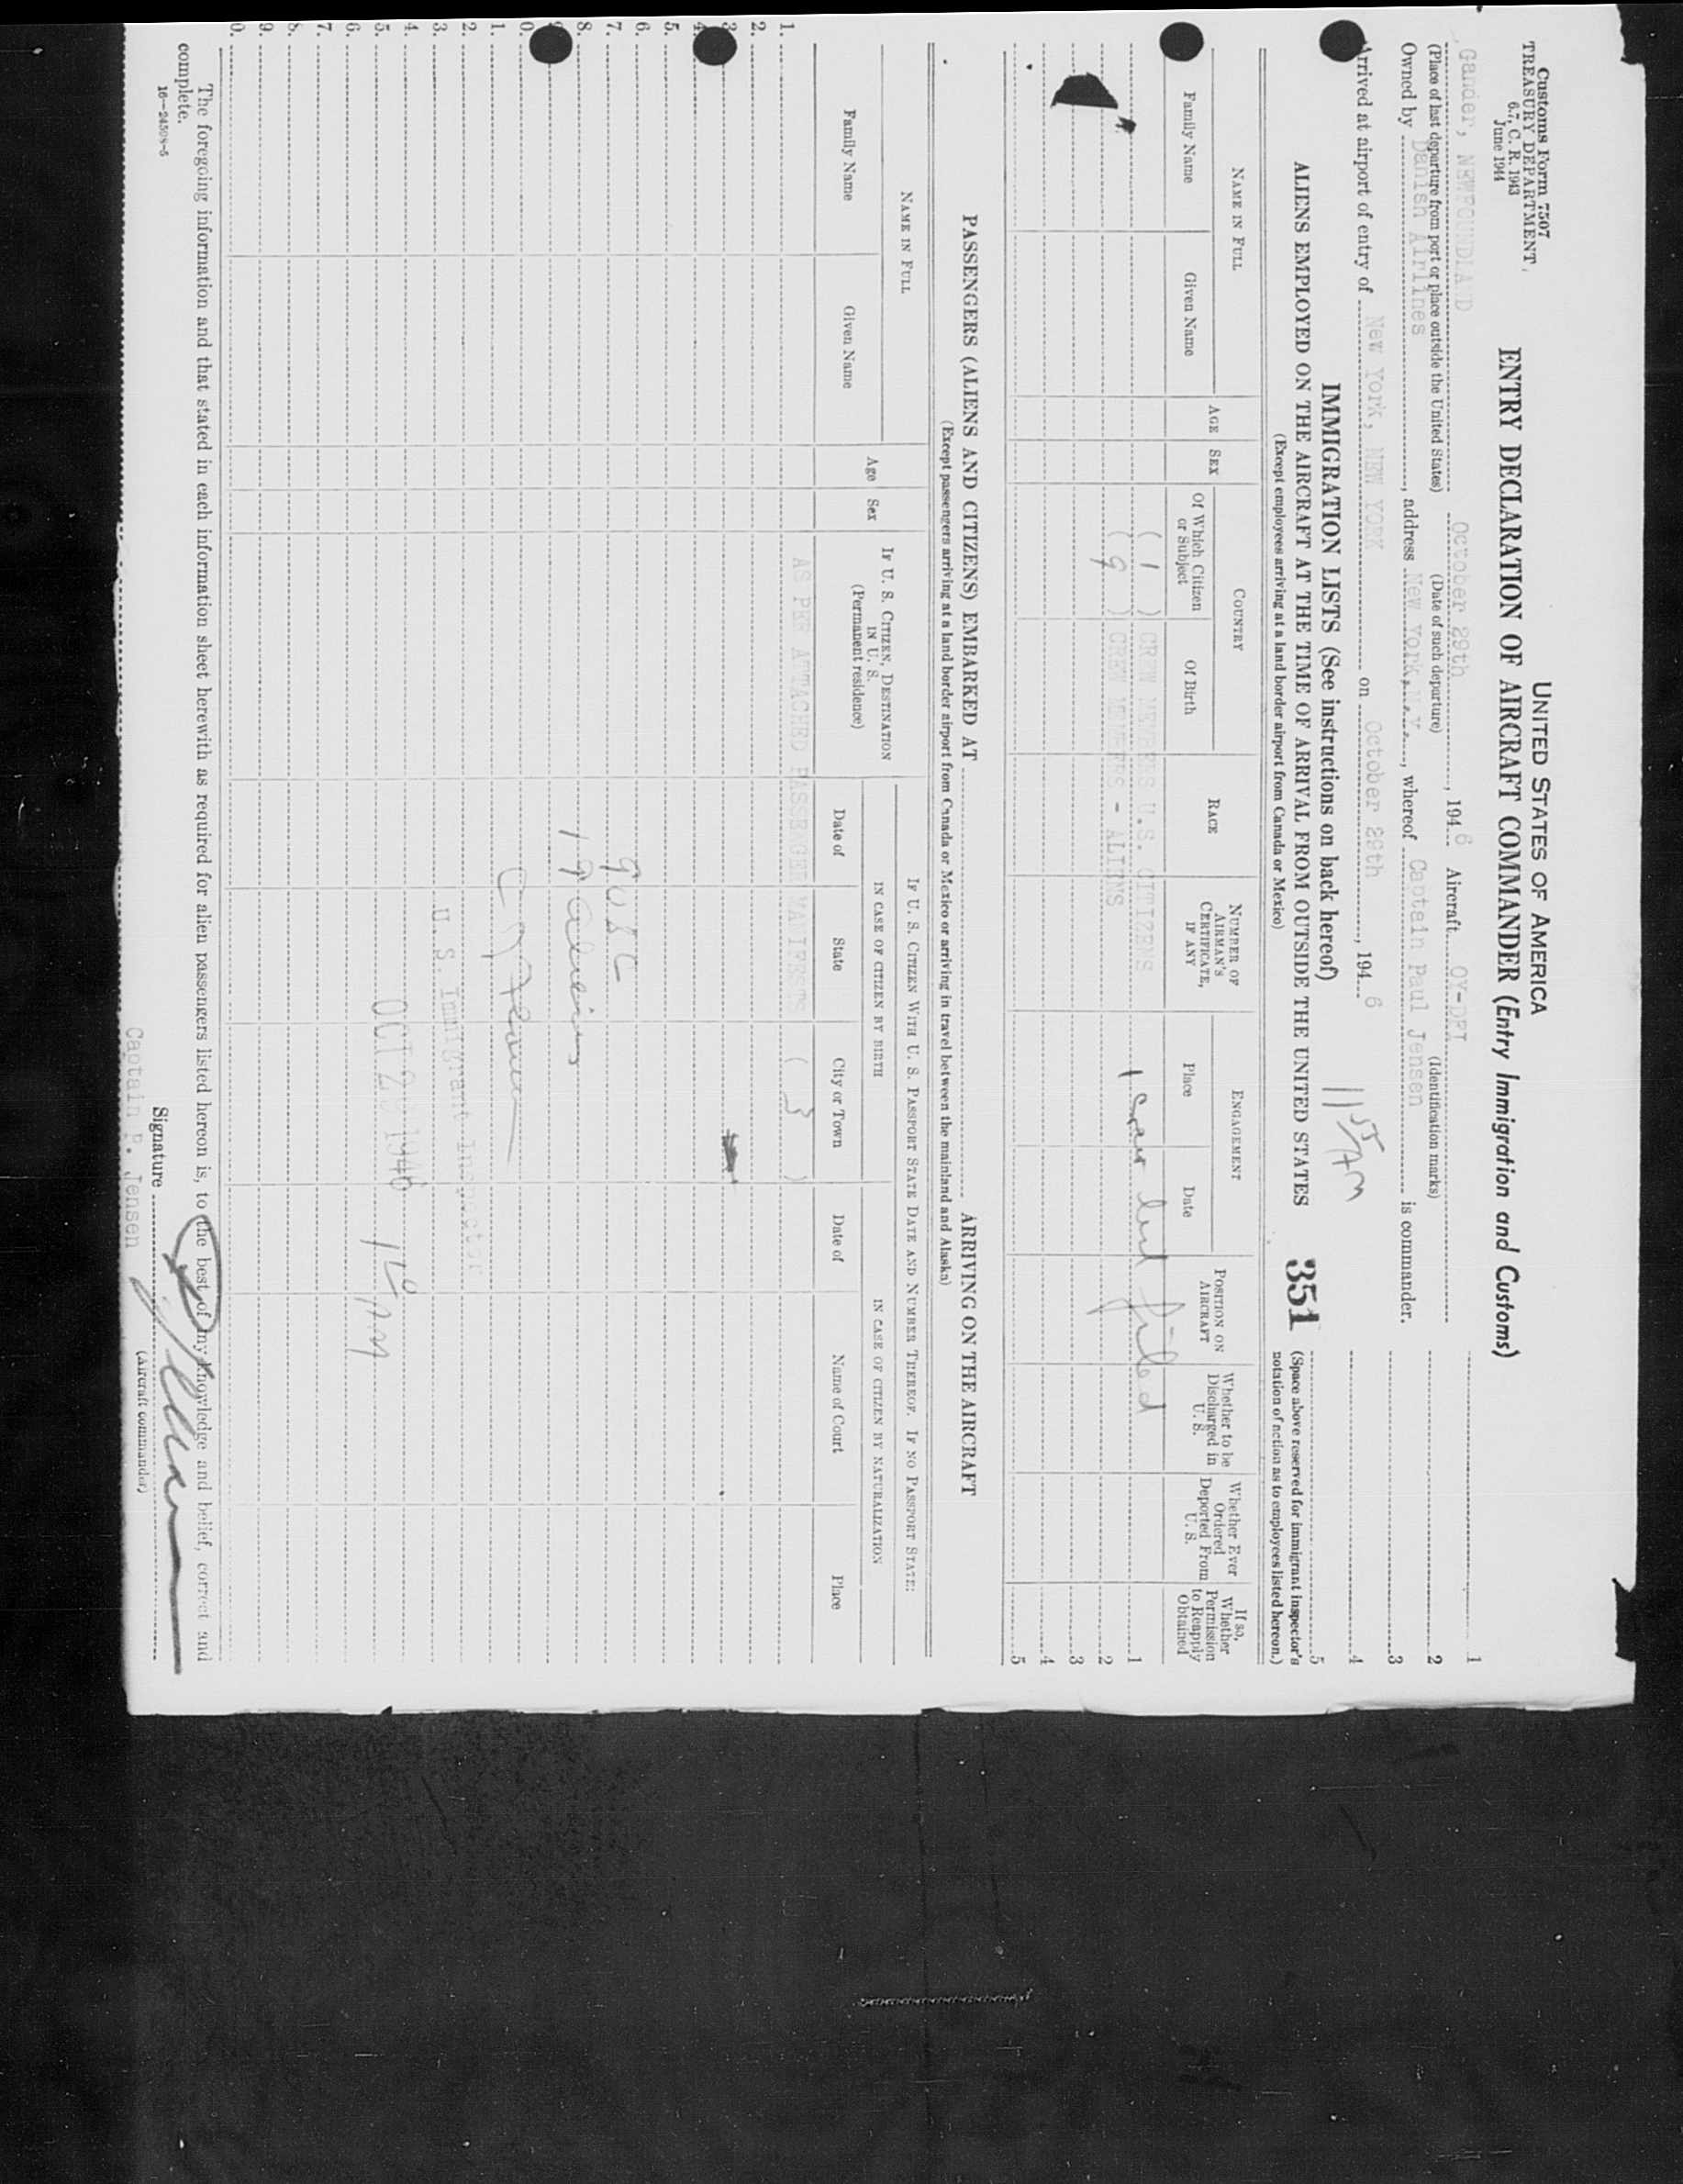 Customs Form 7507
TREASURY DEPARTMENT
6.7, C. R. 1943
June 1944
UNITED STATES OF AMERICA
ENTRY DECLARATION OF AIRCRAFT COMMANDER (Entry Immigration and Customs)
Gander, NEWFOUNDLAND October 29th, 1946 Aircraft OY-DFI
(Place of last departure from port or place outside the United States) (Date of such departure) (Identification marks)
Owned by Danish Airlines, address New York, N.Y., whereof Captain Paul Jensen is commander.
Arrived at airport of entry of New York, NEW YORK on October 29th, 1946
1155 AM
1
2
3
4
5
IMMIGRATION LISTS (See instructions on back hereof)
ALIENS EMPLOYED ON THE AIRCRAFT AT THE TIME OF ARRIVAL FROM OUTSIDE THE UNITED STATES
351
(Space above reserved for immigrant inspector's notation of action as to employees listed hereon.)
(Except employees arriving at a land border airport from Canada or Mexico)
NAME IN FULL
Family Name
Given Name
AGE
SEX
COUNTRY
Of Which Citizen or Subject
Of Birth
RACE
NUMBER OF AIRMAN'S CERTIFICATE, IF ANY
ENGAGEMENT
Place
Date
POSITION ON AIRCRAFT
Whether to be Discharged in U. S.
Whether Ever Ordered Deported From U. S.
If so, Whether Permission to Reapply Obtained
( 1 ) CREW MEMBERS U.S. CITIZENS
1 Crew list filed
1
( 9 ) CREW MEMBERS - ALIENS
2
3
4
5
PASSENGERS (ALIENS AND CITIZENS) EMBARKED AT ARRIVING ON THE AIRCRAFT
(Except passengers arriving at a land border airport from Canada or Mexico or arriving in travel between the mainland and Alaska)
NAME IN FULL
Family Name
Given Name
Age
Sex
IF U. S. CITIZEN, DESTINATION IN U. S.
(Permanent residence)
IF U. S. CITIZEN WITH U. S. PASSPORT STATE DATE AND NUMBER THEREOF. IF NO PASSPORT STATE:
IN CASE OF CITIZEN BY BIRTH
IN CASE OF CITIZEN BY NATURALIZATION
Date of
State
City or Town
Date of
Name of Court
Place
1. AS PER ATTACHED PASSENGER MANIFESTS ( 3 )
2.
3.
4.
5.
6.
7. 9 USC
8.
1 9 Aliens
0.
1.
2. U. S. Immigrant Inspector
3.
4.
5. OCT 29 1946
6. AM
7.
8.
9.
0.
The foregoing information and that stated in each information sheet herewith as required for alien passengers listed hereon is, to the best of my knowledge and belief, correct and
complete.
16—24508-5
Signature
(Aircraft commander)
Captain P. Jensen